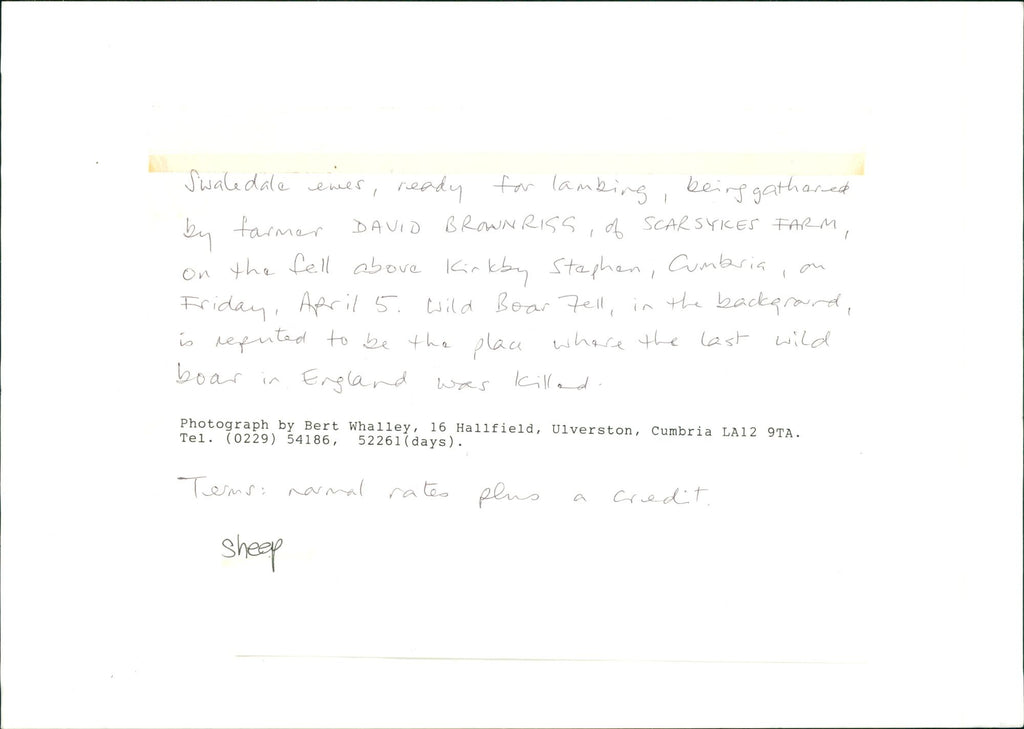 Swaledale ewes, ready for lambing, being gathered
by farmer DAVID BROWNRIGG, of SCARSYKES FARM,
on the fell above Kirkby Stephen, Cumbria, on
Friday, April 5. Wild Boar Fell, in the background,
is reputed to be the place where the last wild
boar in England was killed.
Photograph by Bert Whalley, 16 Hallfield, Ulverston, Cumbria LA12 9TA.
Tel. (0229) 54186, 52261(days).
Terms: normal rates plus a credit.
sheep